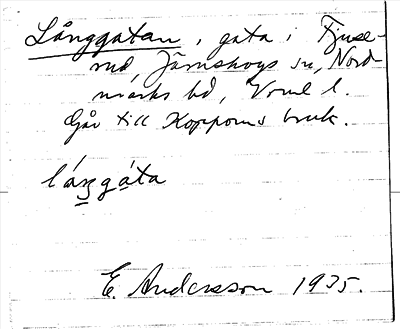 Långgatan, gata i Fjuse-
rud, Järnskogs sn, Nord-
marks hd, Vrml l.
Går till Koppoms bruk.
láŋgàta
E. Andersson 1935.